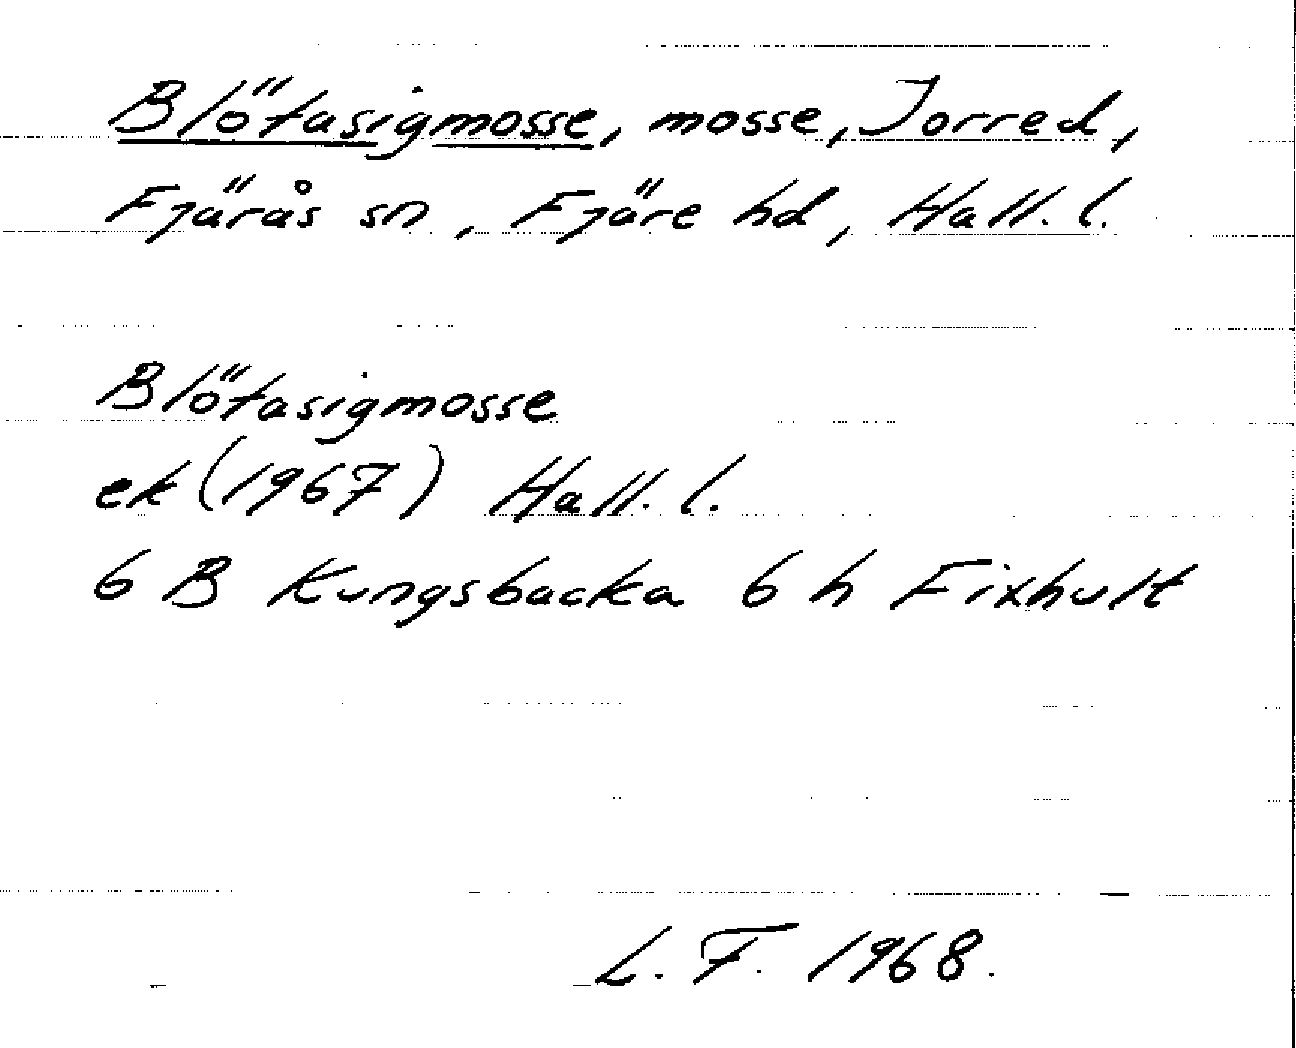 Blötasigmosse, mosse, Jorred,
Fjärås sn, Fjäre hd, Hall. l.
Blötasigmosse
ek (1967) Hall. l.
6 B Kungsbacka 6 h Fixhult
L. F. 1968.